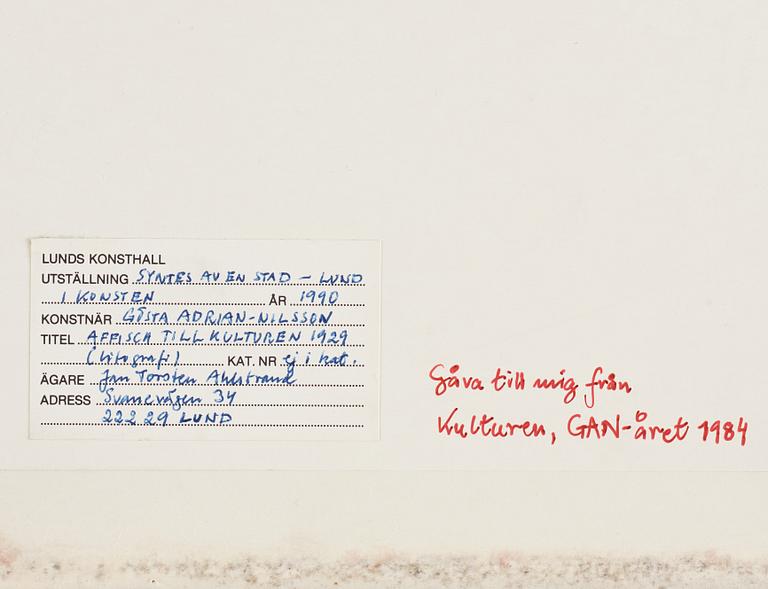 LUNDS KONSTHALL
UTSTÄLLNING SYNTES AV EN STAD – LUND
I KONSTEN ÅR 1990
KONSTNÄR GÖSTA ADRIAN-NILSSON
TITEL AFFISCH TILL KULTUREN 1929
(litografi) KAT. NR ej i kat.
ÄGARE Jan Torsten Ahlstrand
ADRESS Svanevägen 34
222 29 LUND
Gåva till mig från
Kulturen, GAN-året 1984